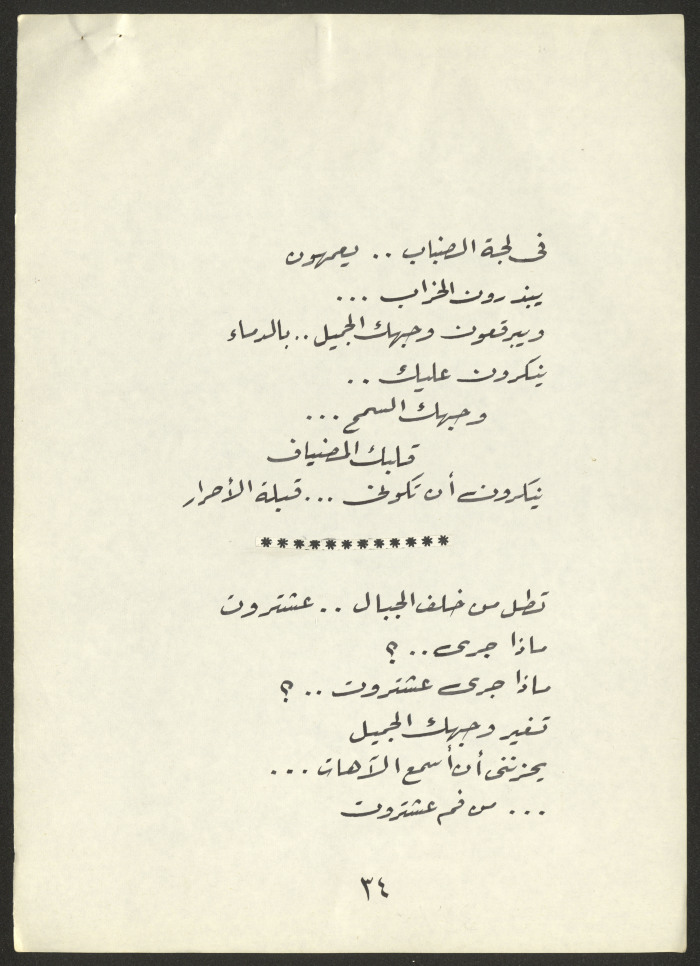 فى لجة الضباب .. يعمهون
يبذرون الخراب ...
ويبرقعون وجهك الجميل .. بالدماء
ينكرون عليك ..
وجهك السمح ...
قلبك المضياف
ينكرون أن تكونى ... قبلة الأحرار
************
تطل من خلف الجبال .. عشتروت
ماذا جرى .. ؟
ماذا جرى عشتروت .. ؟
تغير وجهك الجميل
يحزننى أن أسمع الآهات ...
... من فم عشتروت
٣٤